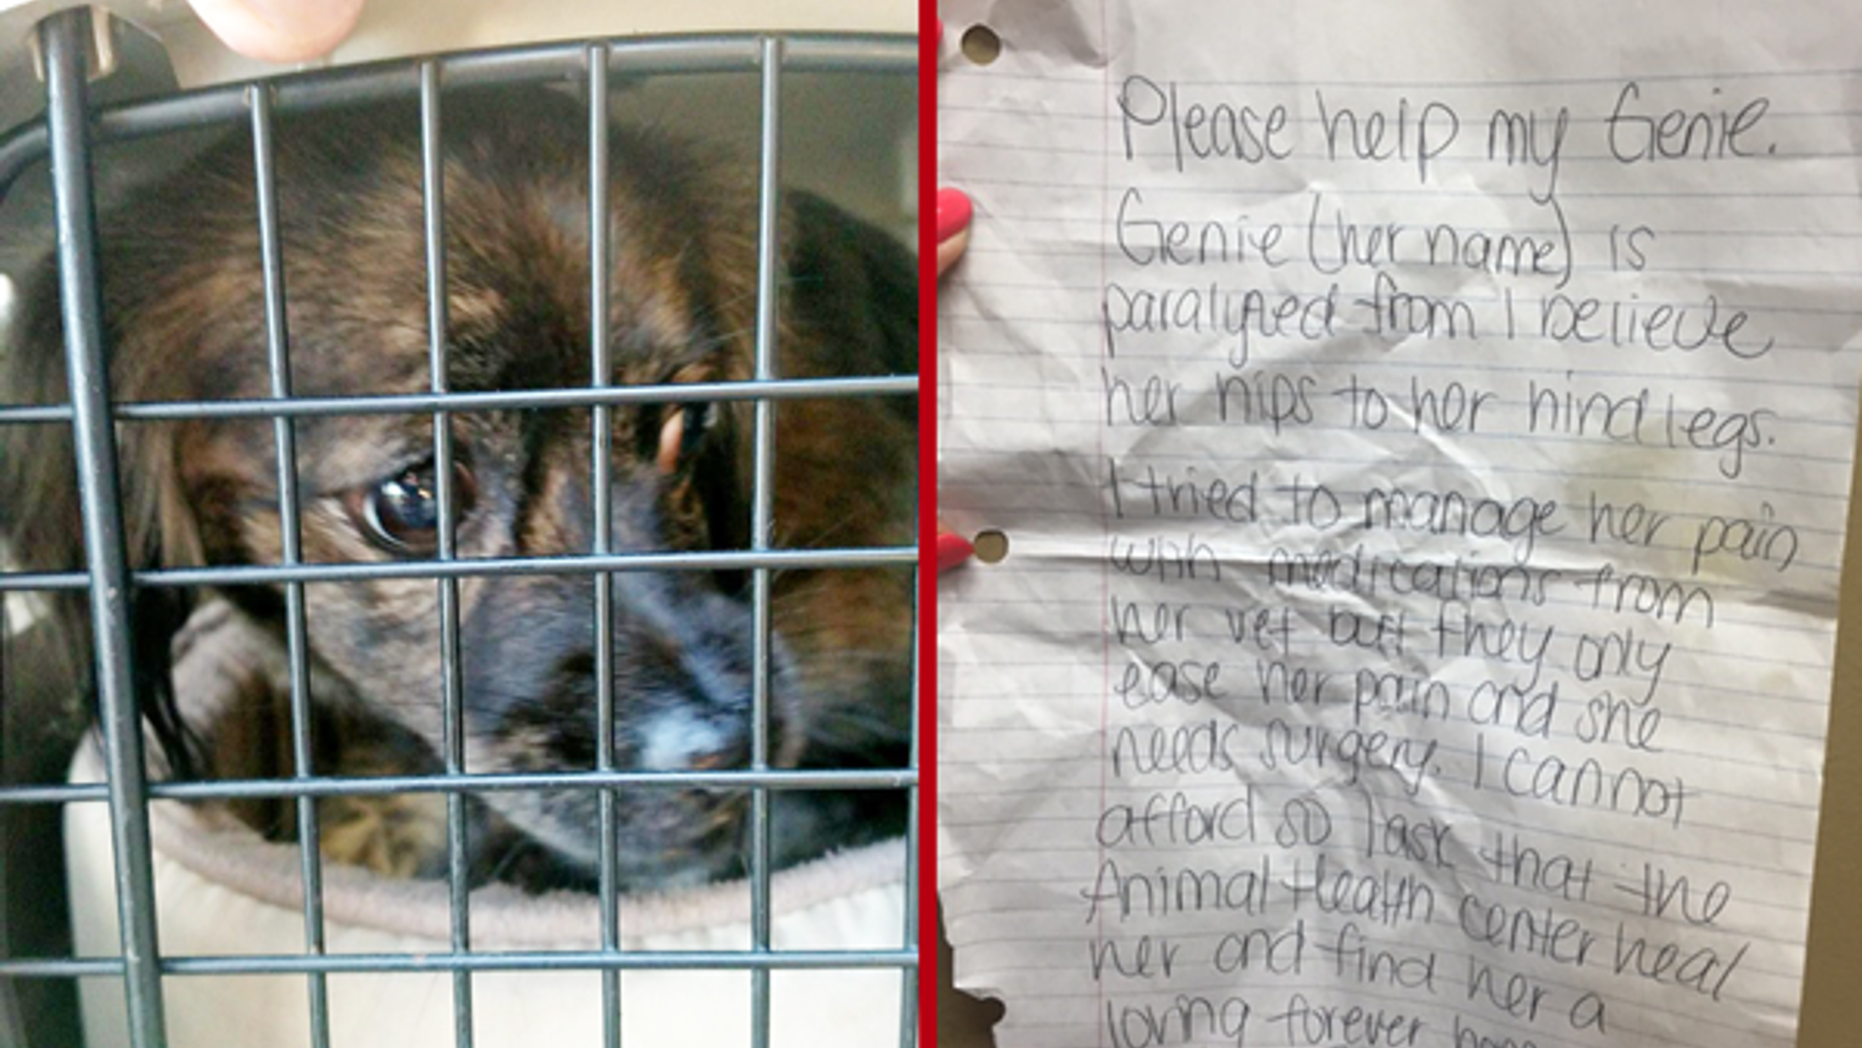 Please help my Genie.
Genie (her name) is
paralyzed from I believe
her hips to her hind legs.
I tried to manage her pain
with medications from
her vet but they only
ease her pain and she
needs surgery. I cannot
afford so I ask that the
Animal Health center heal
her and find her a
loving forever